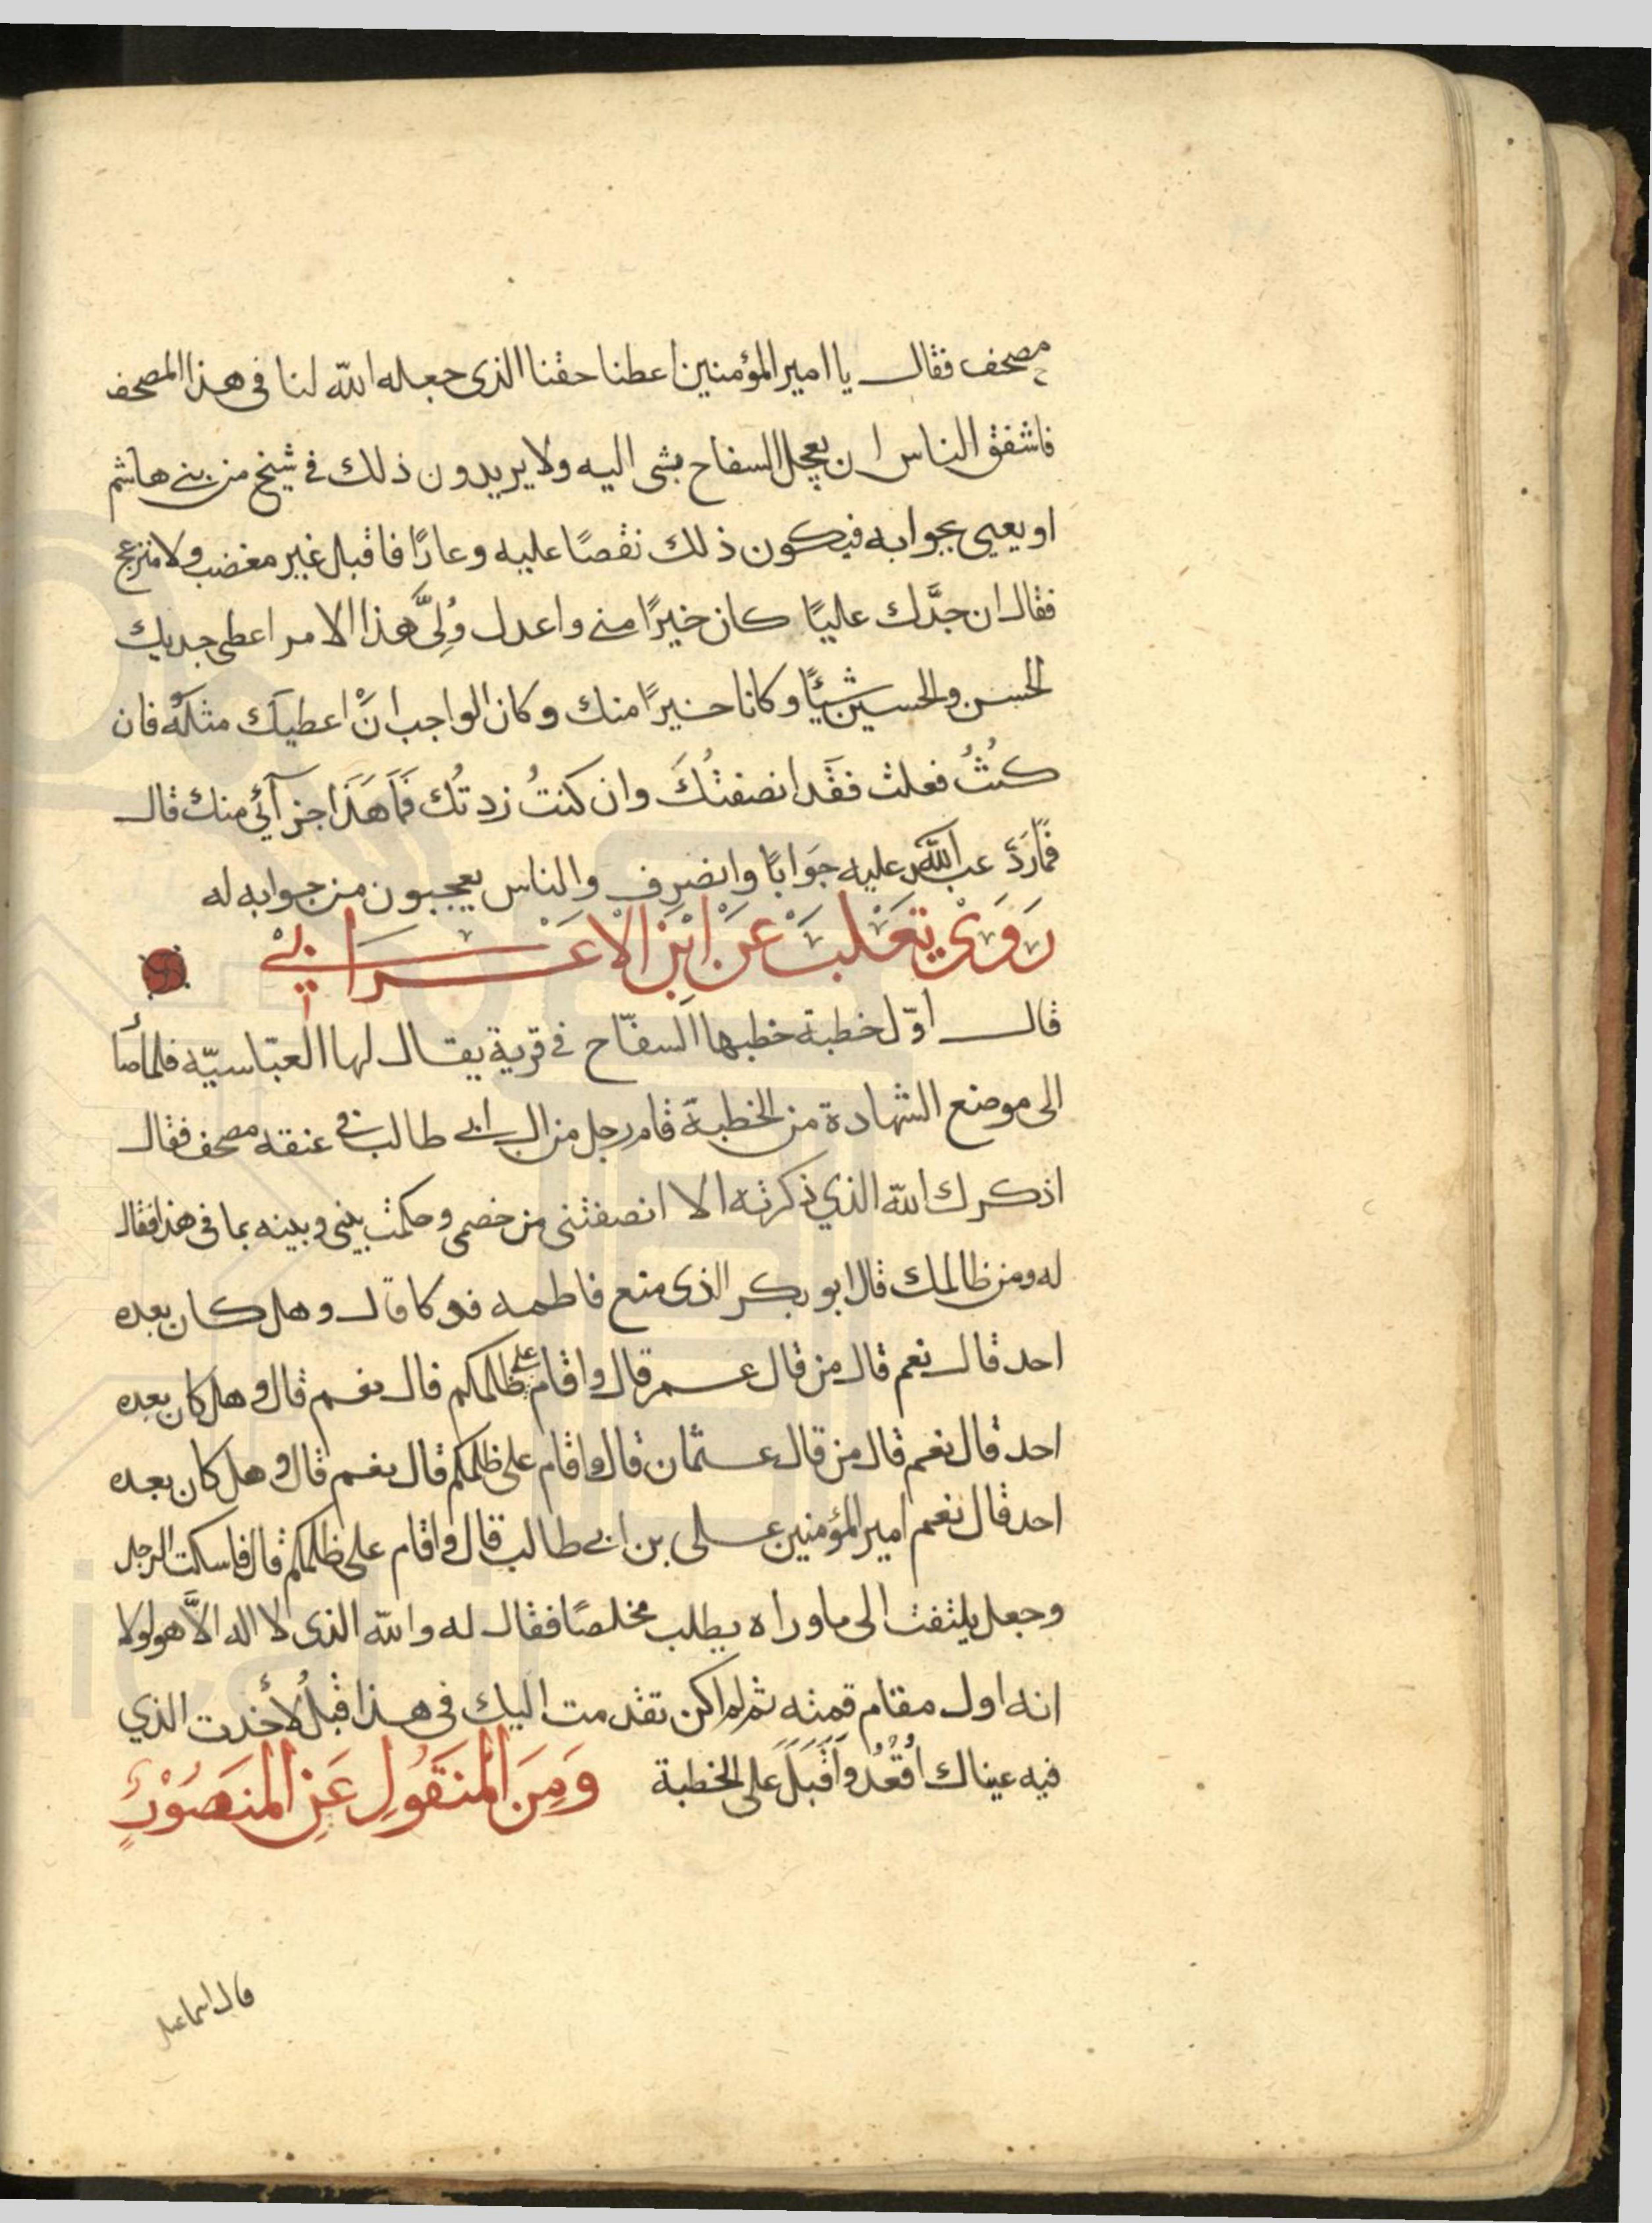 مصحف فقال يا امير المؤمنين اعطنا حقنا الذى جعله الله لنا فى هذا المصحف
فاشفق الناس ان يعجل السفاح بشى اليه ولا يريدون ذلك فى شيخ من بنى هاشم
او يعيى بجوابه فيكون ذلك نقصًا عليه وعارًا فاقبل غير مغضب ولا منزعج
فقال ان جدَّك عليًا كان خيرًا منى واعدل وُلِىَّ هذا الامر اعطى جديك
الحسن والحسين شيئًا وكانا خيرًا منك وكان الواجب انْ اعطيك مثله فان
كنتُ فعلت فقد انصفتُكَ وان كنتُ زدتُك فَمَا هَذَا جزآئى منك قال
فمَا رَدَّ عبد الله عليه جَوَابًا وانصرف والناس يعجبون من جوابه له
رَوَىْ تَعْلَبْ عَنْ ابْنِ الاعْرَابِىْ
قال اوّل خطبة خطبها السفّاح فى قرية يقال لها العبّاسيّه فلما صَاَ
الى موضع الشهادة من الخطبة قام رجل من ال ابى طالب فى عنقه مصحف فقال
اذكرك الله الذي ذكرته الا انصفتنى من خصمى وحكمت بينى وبينه بما فى هذا فقال
له ومن ظالمك قال ابو بكر الذى منع فاطمه فدكا قال وهل كان بعده
احد قال نعم قال من قال عمر قال واقام على ظلمكم قال نعم قال وهل كان بعده
احد قال نعم قال من قال عثمان قال واقام على ظلمكم قال نعم قال وهل كان بعده
احد قال نعم امير المؤمنين على بن ابى طالب قال واقام على ظلمكم قال فاسكت الرجل
وجعل يلتفت الى ما وراه يطلب مخلصًا فقال له والله الذى لا اله الاَّ هو لولا
انه اول مقام قمته ثم لم اكن تقدمت اليك فى هذا قبلُ لأخذت الذي
فيه عيناك اُقْعُدْ وَاَقْبَلَ على الخطبة وَمِنَ المَنقَولِ عَنِ المنصَوْرِ
قال اسماعيل